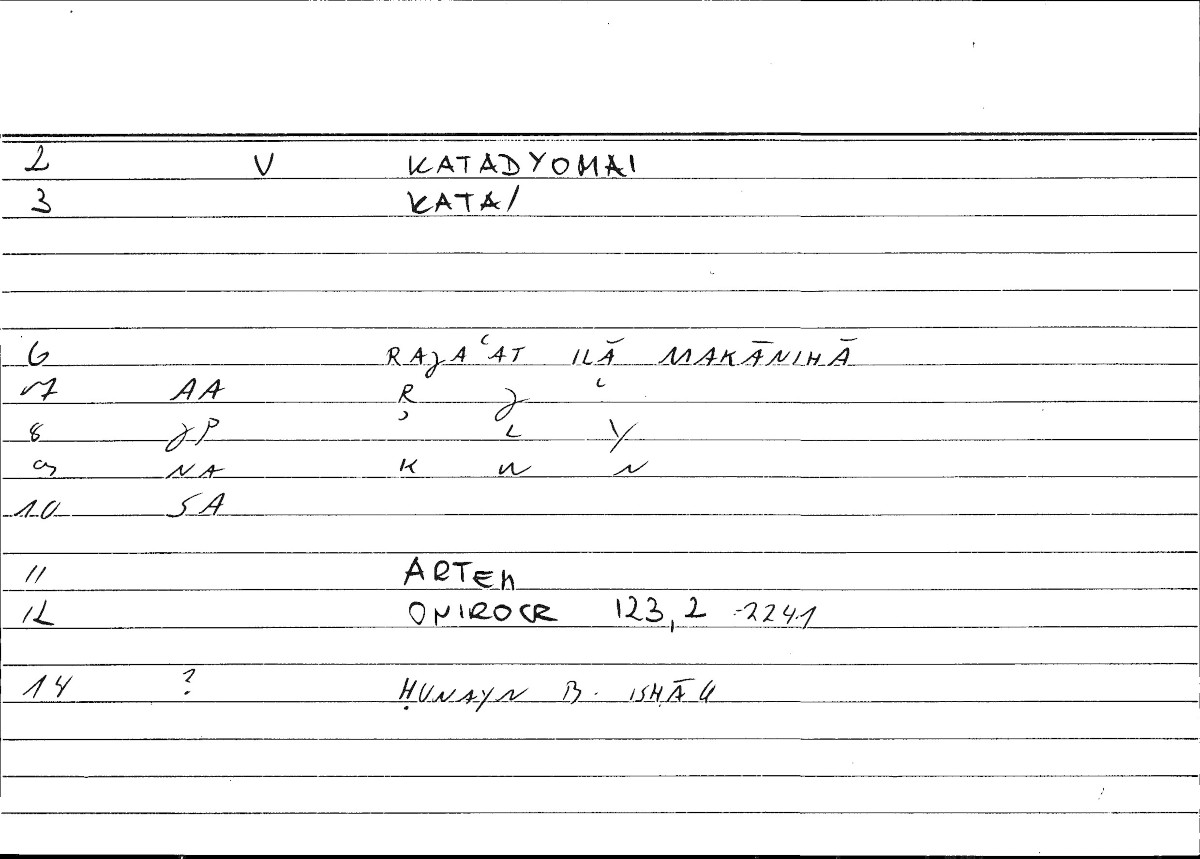 2 V KATADYOMAI
3 KATA/
6 RAJAʿAT ILĀ MAKĀNIHĀ
7 AA R J ʿ
8 JP ʾ L Y
9 NA K W N
10 SA
11 ARTEM
12 ONIROCR 123,2 -2241
14 ? ḤUNAYN B. ISḤĀQ